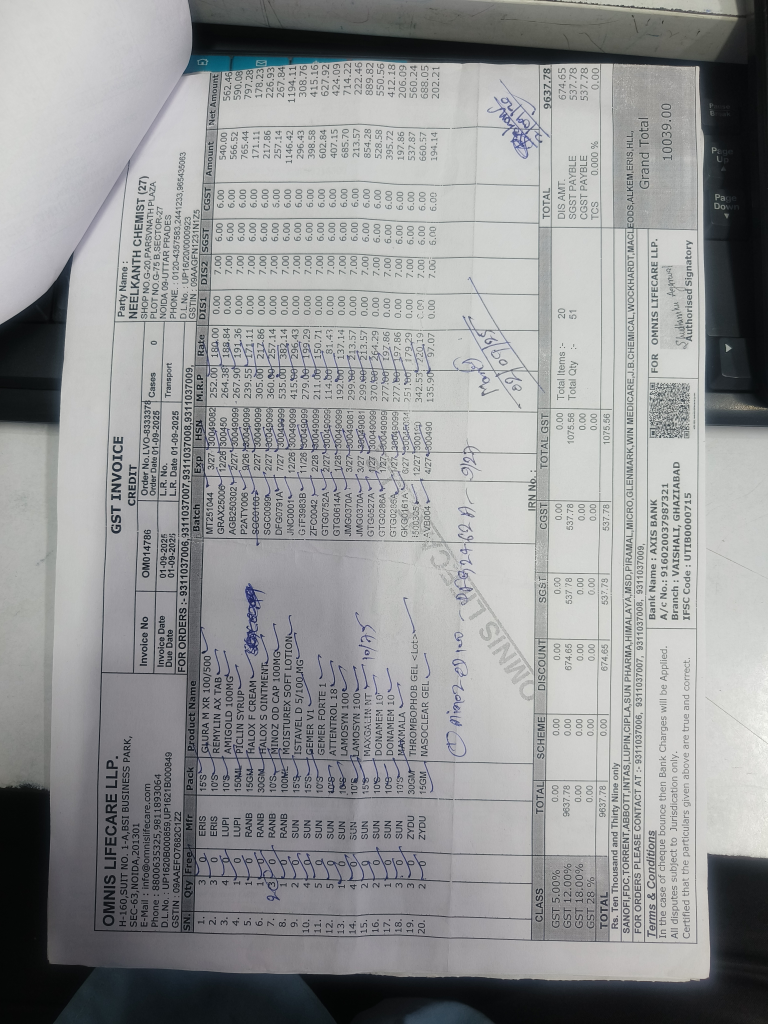 GST INVOICE
CREDIT
OMNIS LIFECARE LLP.
H-160,SUTT NO. 1-A,BSI BUSINESS PARK,
SEC-63,NOIDA,201301
E-Mail : info@omnislifecare.com
Phone : 8800635325,9811893064
D.L.No. : UP1620B000859,UP1621B000849
GSTIN : 09AAEFO7682C1Z2
Invoice No OM014786 Order No. LVO-8333378
Order Date 01-09-2025 Cases 0
Invoice Date 01-09-2025 L.R. No.
Due Date 01-09-2025 L.R. Date 01-09-2025 Transport
FOR ORDERS :- 9311037006,9311037007,9311037008,9311037009,9311037009,
Party Name :
NEELKANTH CHEMIST (27)
SHOP NO.G-20,PARSVNATH PLAZA
PLOT NO.G-75 B,SECTOR-27
NOIDA 09-UTTAR PRADES
PHONE. : 0120-4357583,2441233,965435083
D.L.No. : UP16/20/0000923
GSTIN : 09AAGFN1231N1Z5
SN. Qty Free Mfr Pack Product Name Batch Exp HSN M.R.P Rate DIS1 DIS2 SGST CGST Amount Net Amount
1. 3 0 ERIS 15'S GLURA M XR 100/500 MT251044 3/27 30049082 252.00 180.00 0.00 7.00 6.00 6.00 540.00 562.46
2. 3 0 ERIS 10'S REMYLIN AX TAB GRAX25006 12/26 300450 264.38 188.84 0.00 7.00 6.00 6.00 566.52 590.08
3. 4 0 LUPI 10'S AMIGOLD 100MG AGB250302 2/27 30049099 267.90 191.36 0.00 7.00 6.00 6.00 765.44 797.28
4. 1 0 LUPI 150ML PICLIN SYRUP P2ATY006 9/26 30049099 239.55 171.11 0.00 7.00 6.00 6.00 171.11 178.23
5. 1 0 RANB 15GM HALOX F CREAM 2/27 30049099 305.00 217.86 0.00 7.00 6.00 6.00 217.86 226.93
6. 1 0 RANB 30GM HALOX S OINTMENT SGC0099A 2/27 30049099 360.00 257.14 0.00 7.00 6.00 6.00 257.14 267.84
7. 3 0 RANB 10'S MINOZ OD CAP 100MG DFG0791A 7/27 30049099 535.00 382.14 0.00 7.00 6.00 6.00 1146.42 1194.11
8. 1 0 RANB 100ML MOISTUREX SOFT LOTION JNC0001 12/26 30049099 415.00 296.43 0.00 7.00 6.00 6.00 296.43 308.76
9. 2 0 SUN 15'S ISTAVEL D 5/100 MG GTF3983B 11/26 30049099 279.00 199.29 0.00 7.00 6.00 6.00 398.58 415.16
10. 4 0 SUN 15'S GEMER V1 ZFC0042 2/28 30049099 211.00 150.71 0.00 7.00 6.00 6.00 602.84 627.92
11. 5 0 SUN 10'S GEMER FORTE 1 GTG0752A 2/27 30049099 114.00 81.43 0.00 7.00 6.00 6.00 407.15 424.09
12. 5 0 SUN 10'S ATTENTROL 18 GTG0614A 1/28 30049099 192.00 137.14 0.00 7.00 6.00 6.00 685.70 714.22
13. 1 0 SUN 10'S LAMOSYN 100 JMG0370A 3/27 30049081 299.00 213.57 0.00 7.00 6.00 6.00 213.57 222.46
14. 4 0 SUN 10'S LAMOSYN 100 JMG0370A 3/27 30049081 299.00 213.57 0.00 7.00 6.00 6.00 854.28 889.82
15. 2 0 SUN 15'S MAXGALIN NT GTG0527A 1/27 30049099 370.00 264.29 0.00 7.00 6.00 6.00 528.58 550.56
16. 2 0 SUN 10'S DONAMEM 10 GTG0286A 1/27 30049099 277.00 197.86 0.00 7.00 6.00 6.00 395.72 412.18
17. 1 0 SUN 10'S DONAMEM 10 GTG0286A 1/27 30049099 277.00 197.86 0.00 7.00 6.00 6.00 197.86 206.09
18. 3 0 SUN 10'S MAXMALA 251.00 179.29 0.00 7.00 6.00 6.00 537.87 560.24
19. 3 0 ZYDU 30GM THROMBOPHOB GEL <Lct> 12/27 300190 220.19 0.00 7.00 6.00 6.00 660.57 688.05
20. 2 0 ZYDU 15GM NASOCLEAR GEL AVB004 4/27 300490 135.90 97.07 0.00 7.00 6.00 6.00 194.14 202.21
10/25
OMNIS LIFECARE
IRN No :
CLASS TOTAL SCHEME DISCOUNT SGST CGST TOTAL GST
GST 5.00% 0.00 0.00 0.00 0.00 0.00 0.00
GST 12.00% 9637.78 0.00 674.65 537.78 537.78 1075.56
GST 18.00% 0.00 0.00 0.00 0.00 0.00 0.00
GST 28 % 0.00 0.00 0.00 0.00 0.00 0.00
TOTAL 9637.78 0.00 674.65 537.78 537.78 1075.56
Total Items :- 20
Total Qty :- 51
TOTAL 9637.78
DIS AMT. 674.65
SGST PAYBLE 537.78
CGST PAYBLE 537.78
TCS 0.000 % 0.00
Rs. Ten Thousand and Thirty Nine only
Grand Total
10039.00
SANOFI,FDC,TORRENT,ABBOTT,INTAS,LUPIN,CIPLA,SUN PHARMA,HIMALAYA,MSD,PIRAMAL,MICRO,GLENMARK,WIN MEDICARE,J.B.CHEMICAL,WOCKHARDT,MACLEODS,ALKEM,ERIS,HLL,
FOR ORDERS PLEASE CONTACT AT :- 9311037006, 9311037007, 9311037008, 9311037009, 9311037009,
Terms & Conditions
In the case of cheque bounce then Bank Charges will be Applied.
All disputes subject to Jurisdication only.
Certified that the particulars given above are true and correct.
Bank Name : AXIS BANK
A/c No. : 916020037987321
Branch : VAISHALI, GHAZIABAD
IFSC Code : UTIB0000715
FOR OMNIS LIFECARE LLP.
Authorised Signatory
Page Up
Page Down